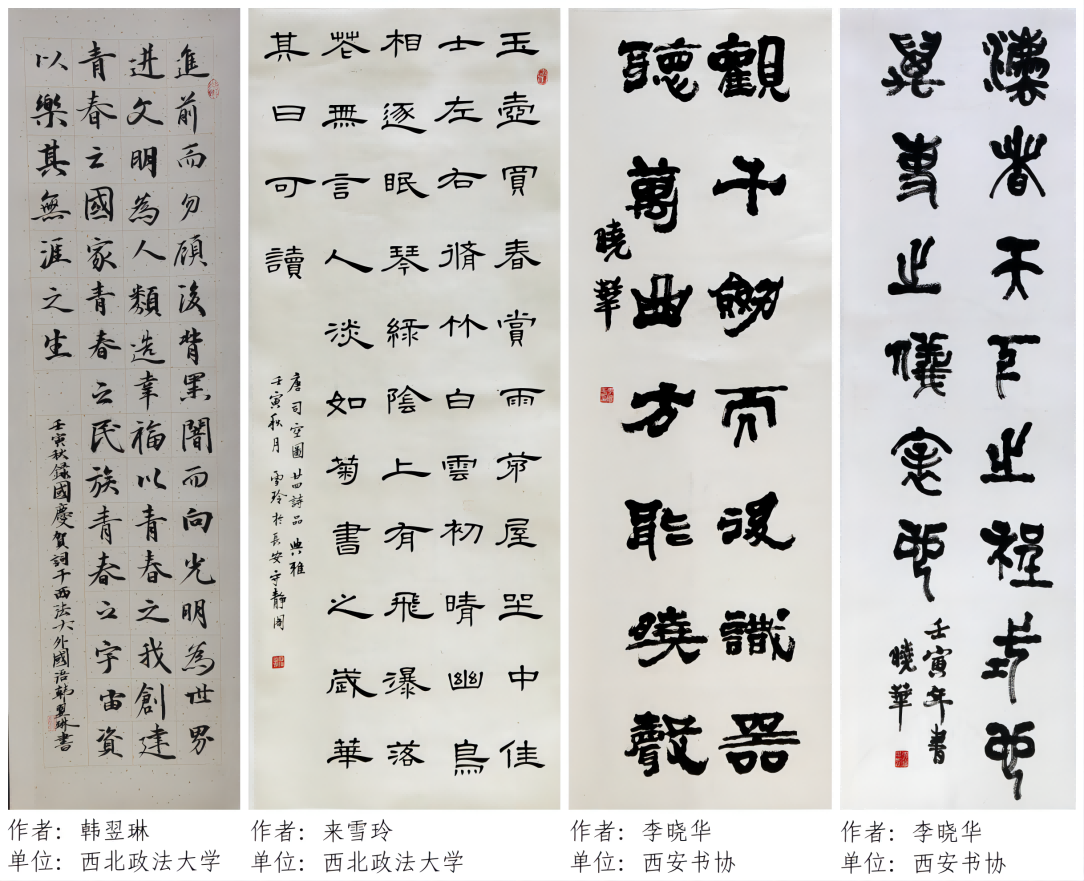 進前而勿顧後背黑闇而向光明為世界
进文明為人類造幸福以青春之我創建
青春之國家青春之民族青春之宇宙資
以樂其無涯之生
壬寅秋録國慶賀詞于西法大外國语韩翌琳書
作者：韩翌琳
单位：西北政法大学
玉壺買春賞雨茆屋坐中佳
士左右脩竹白雲初晴幽鳥
相逐眠琴綠陰上有飛瀑落
花無言人淡如菊書之歲華
其曰可讀
唐司空圖廿四詩品 典雅
壬寅秋月 雪玲於長安守靜閣
作者：来雪玲
单位：西北政法大学
觀千劍而後識器
聽萬曲方能曉聲
曉華
作者：李晓华
单位：西安书协
灋者天下之程式也
萬事之儀表也
壬寅年書
曉華
作者：李晓华
单位：西安书协